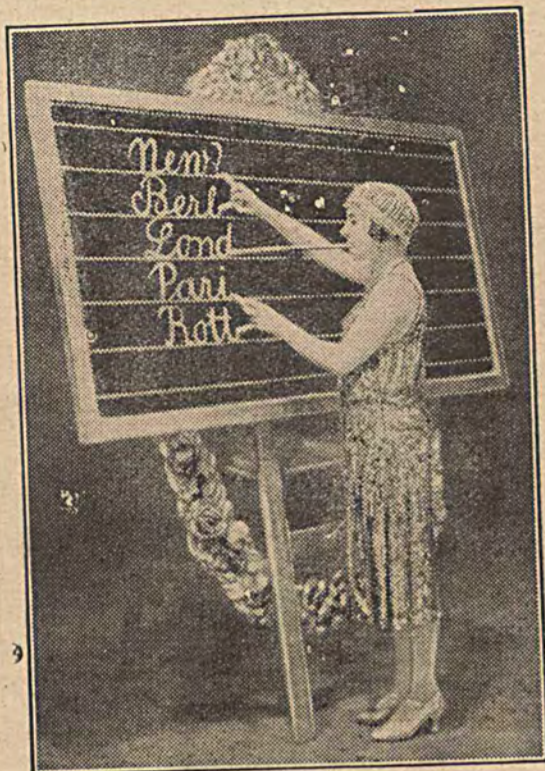 New?
Berl
Lond
Pari
Rott